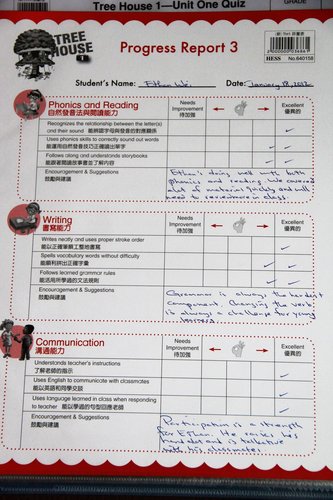 Tree House 1—Unit One Quiz
GRADE
TREE
HOUSE
1
Progress Report 3
HESS No.640158
Student's Name: Ethan Wei Date: January 18, 2012
Phonics and Reading
自然發音法與閱讀能力
Needs
Improvement
待加強
Excellent
優異的
Recognizes the relationship between the letter(s)
and their sound 能辨認字母與發音的對應關係
Uses phonics skills to correctly sound out words
能運用自然發音技巧正確讀出單字
Follows along and understands storybooks
能跟著閱讀故事書並了解內容
Encouragement & Suggestions
鼓勵與建議
Ethan's doing well with both
phonics and reading. We covered
alot of material quickly and will
need to review more in class.
Writing
書寫能力
Needs
Improvement
待加強
Excellent
優異的
Writes neatly and uses proper stroke order
能以正確筆順工整地書寫
Spells vocabulary words without difficulty
能順利拼出正確字彙
Follows learned grammar rules
能活用所學過的文法規則
Encouragement & Suggestions
鼓勵與建議
Grammar is always the hardest
component. Changing the verb
is always a challenge for young
learners.
Communication
溝通能力
Needs
Improvement
待加強
Excellent
優異的
Understands teacher's instructions
了解老師的指示
Uses English to communicate with classmates
能以英語和同學交談
Uses language learned in class when responding
to teacher 能以學過的句型回應老師
Encouragement & Suggestions
鼓勵與建議
Participation is a strength
for Ethan. He raises his
hand alot and is talkative
with his classmates.